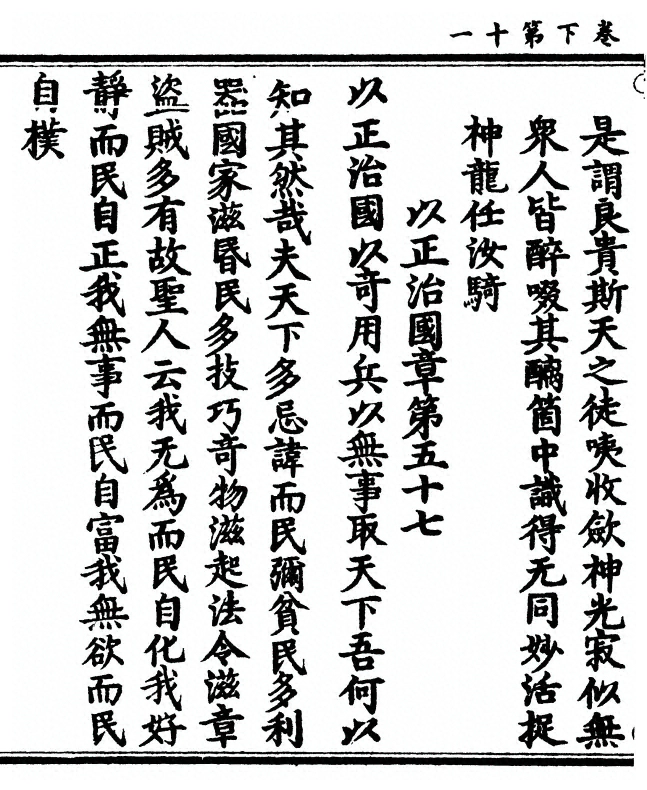 卷下第十一
是謂良貴斯天之徒咦收歛神光寂似無
衆人皆醉啜其醨箇中識得无同妙活捉
神龍任汝騎
以正治國章第五十七
以正治國以竒用兵以無事取天下吾何以
知其然哉夫天下多忌諱而民彌貧民多利
器國家滋昬民多技巧竒物滋起法令滋章
盜賊多有故聖人云我无爲而民自化我好
靜而民自正我無事而民自富我無欲而民
自樸